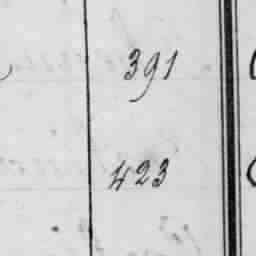 391
423